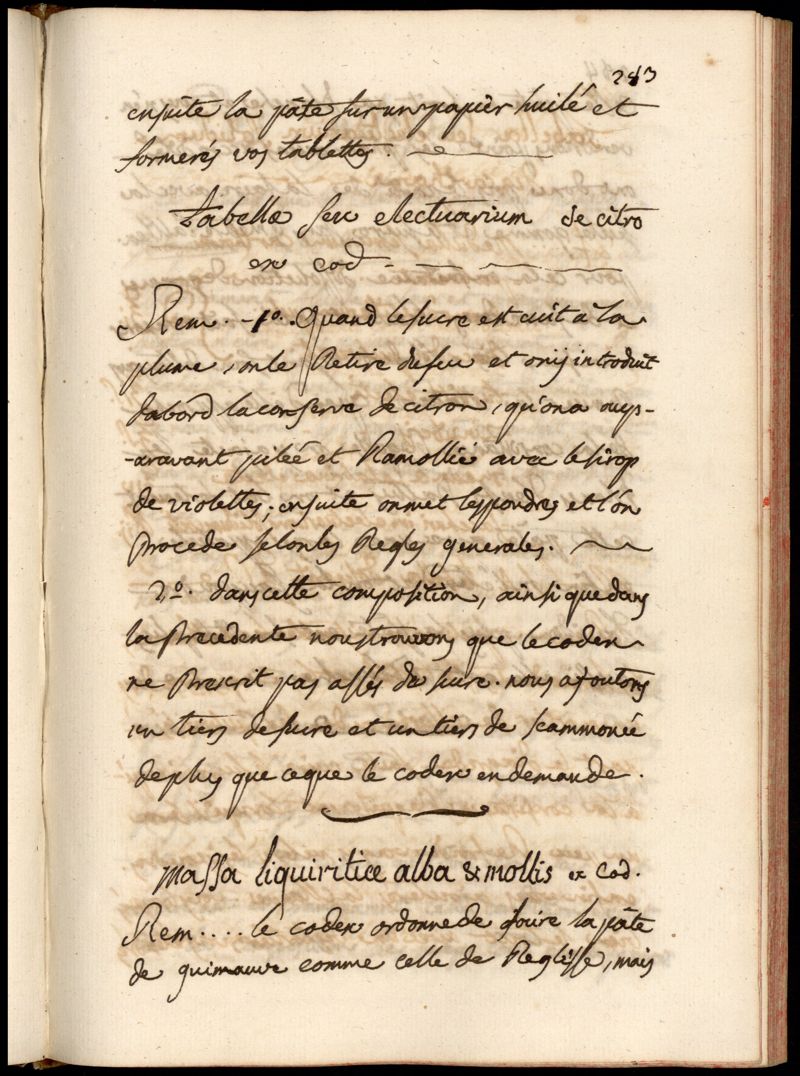 243
ensuite la pâte sur un papier huilé et
formerés vos tablettes.
tabellæ seu electuarium de citro
ex cod
Rem. - 1º. Quand le sucre est cuit à la
plume, on le Retire du feu et on y introduit
dabord la conserve de citron, qu'on a oup-
-aravant pileé et Ramollié avec le sirop
de violettes; ensuite on met les poudres et l'on
Procede selon les Regles generales.
2.º. dans cette composition, ainsi que dans
la Precedente nous trouvons que le codex
ne Prescrit pas assés de sucre. nous ajoutons
un tiers de sucre et un tiers de scammonée
de plus que ce que le codex en demande.
massa liquiritiæ alba & mollis ex Cod.
Rem.... le codex ordonne de faire la pâte
de guimauve comme celle de Reglisse, mais